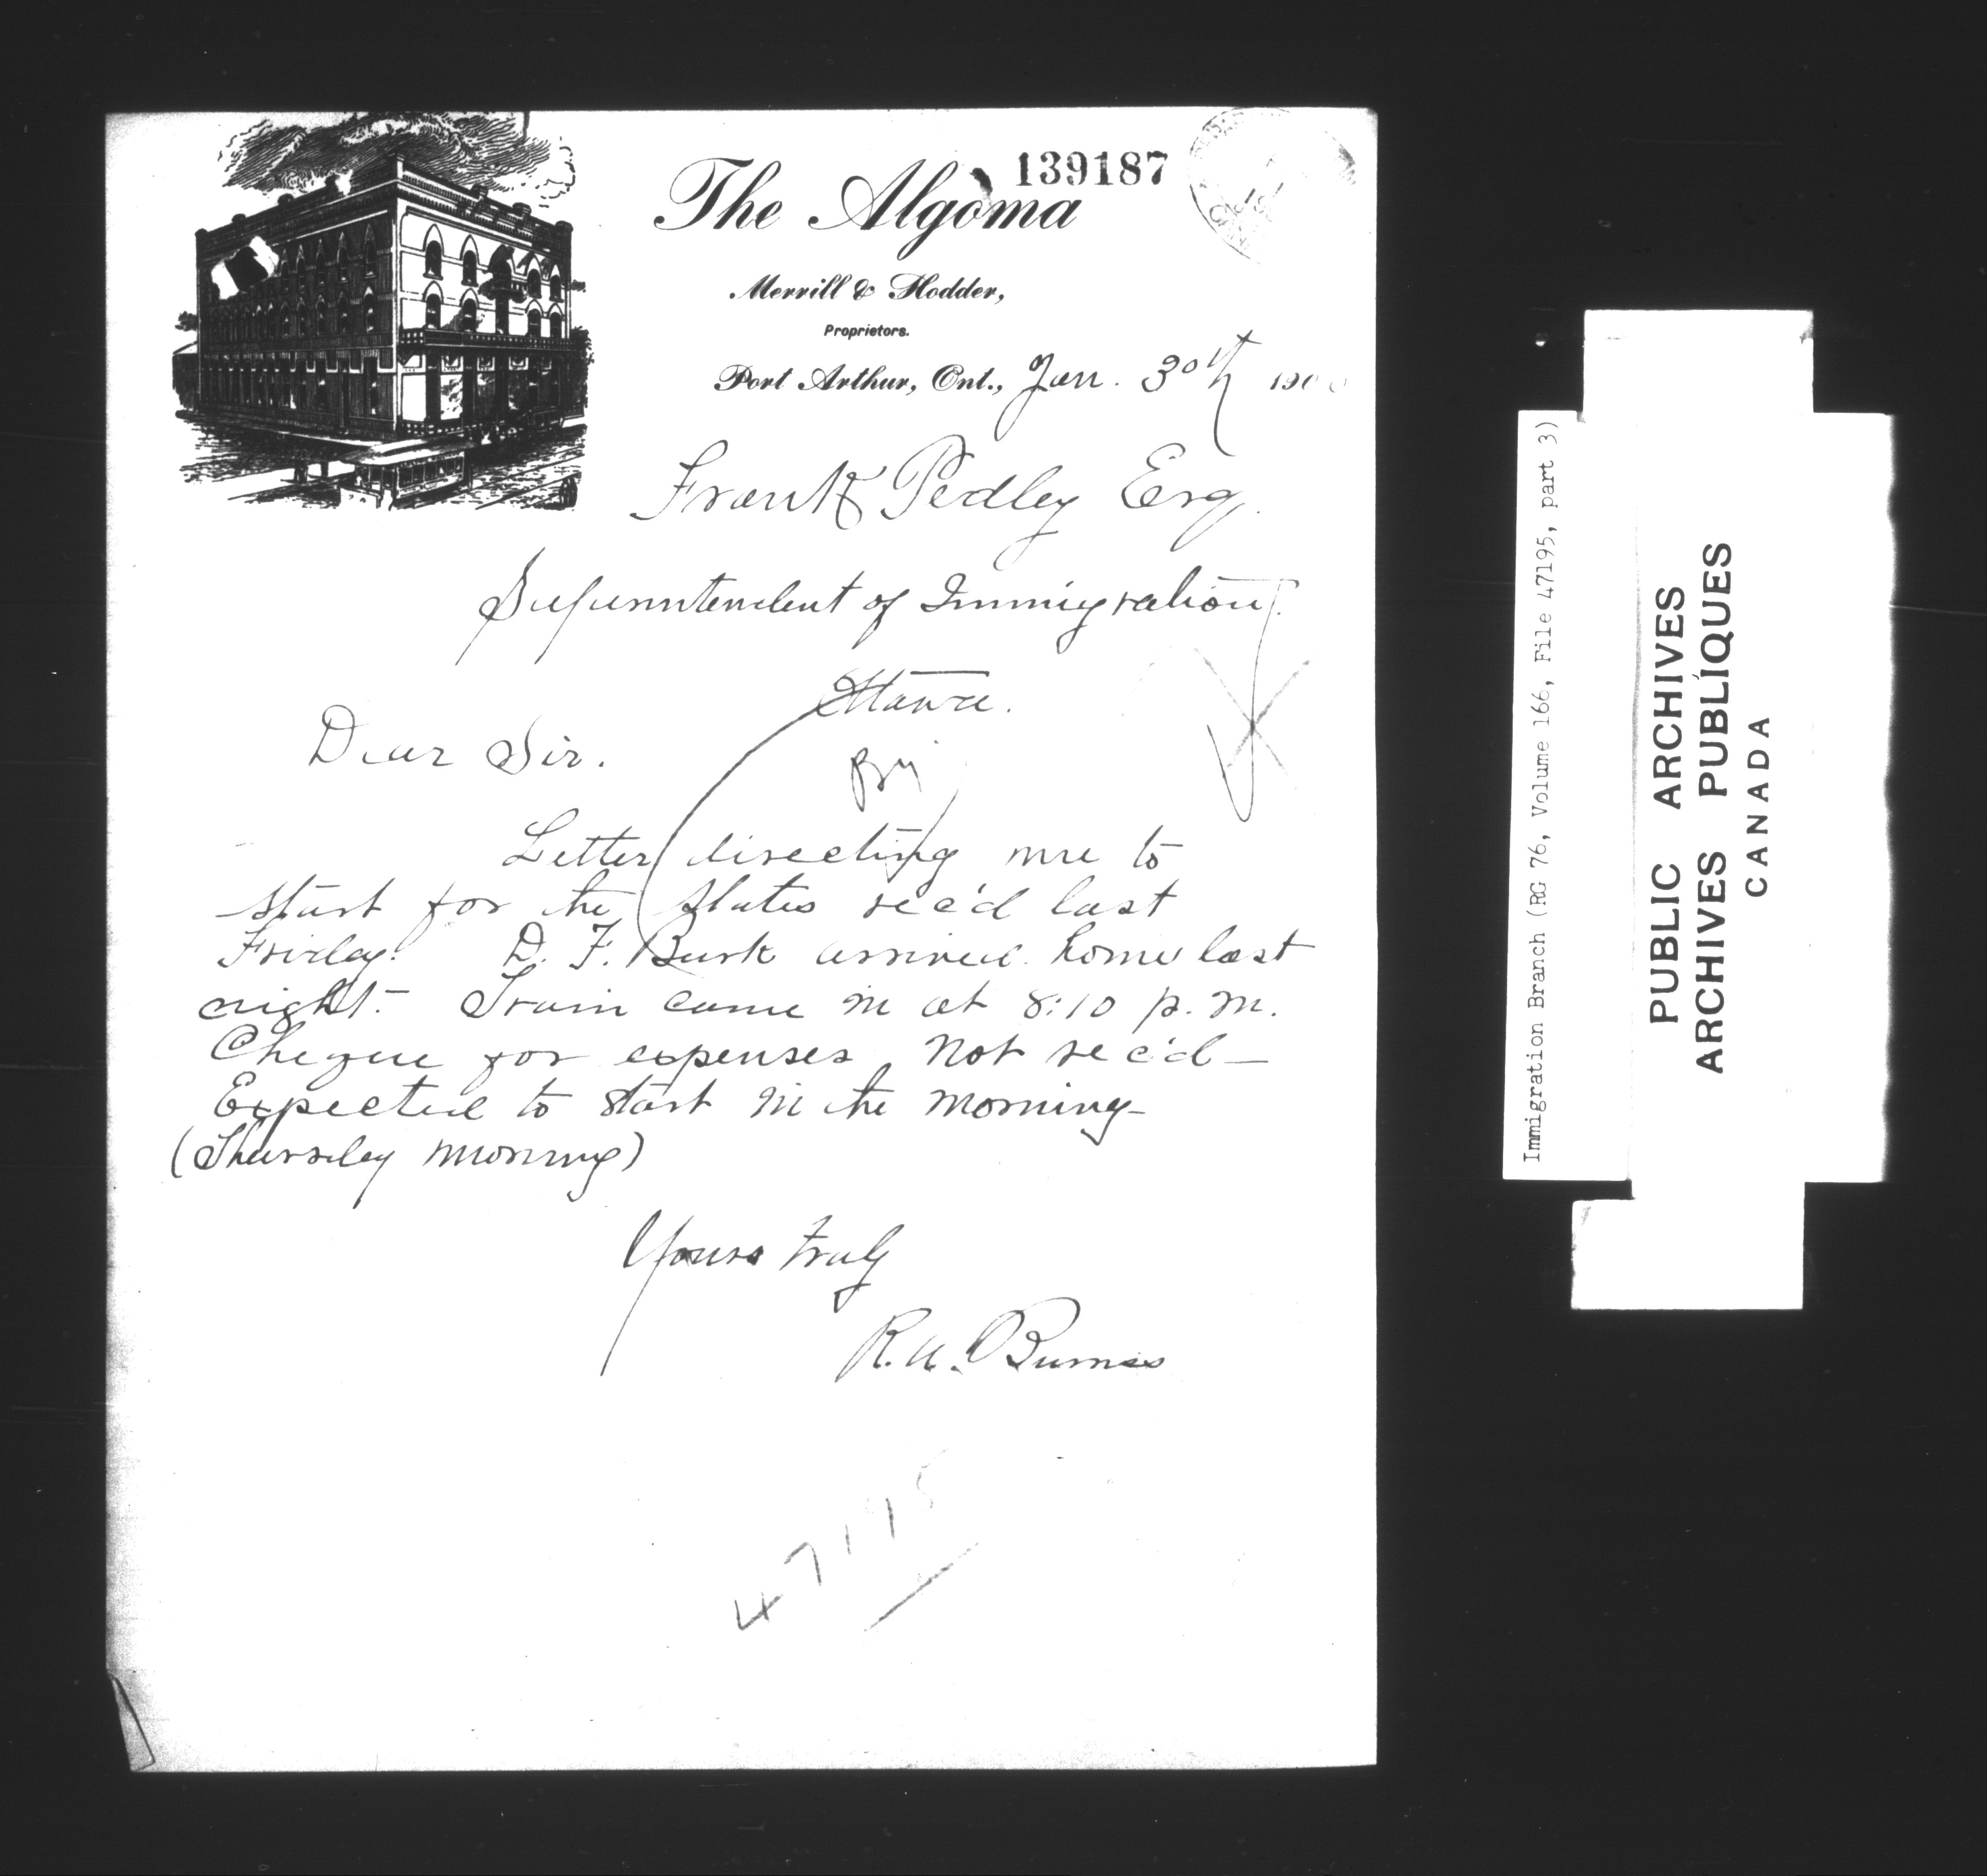 139187
The Algoma
Merrill & Hodder,
Proprietors.
Port Arthur, Ont., Jan. 30th 190
Frank Pedley Esq.
Superintendent of Immigration
Ottawa.
Dear Sir.
Letter directing me to
start for the States rec'd last
Friday. D. F. Burk arrived home last
night. - Train came in at 8:10 p.m.
Cheque for expenses not rec'd -
Expected to start in the morning -
(Thursday morning)
Yours truly
R. A. Burriss
47195
Immigration Branch (RG 76, Volume 166, File 47195, part 3)
PUBLIC ARCHIVES
ARCHIVES PUBLIQUES
CANADA